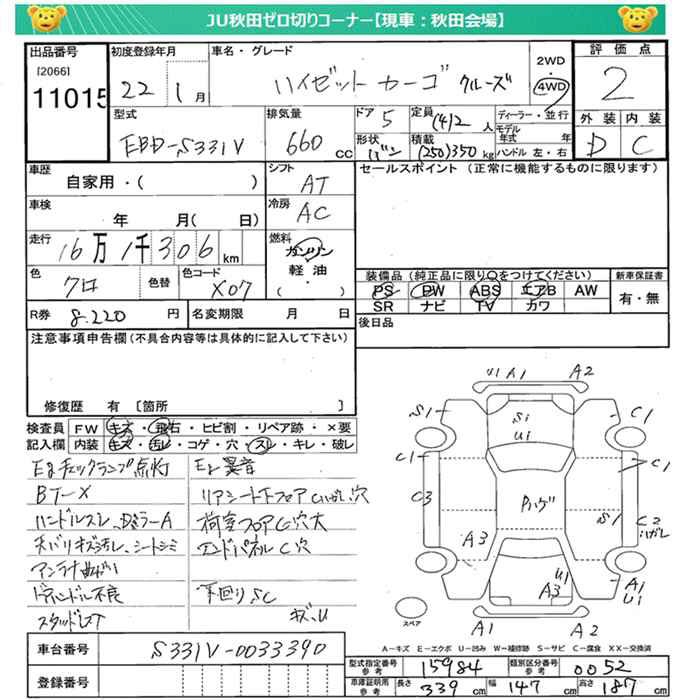 JU秋田ゼロ切りコーナー【現車：秋田会場】
出品番号
[2066]
11015
初度登録年月
22 1月
車名・グレード
ハイゼットカーゴ クルーズ
2WD
4WD
評価点
2
型式
EBD-S331V
排気量
660 cc
ドア 5
定員 (4)2 人
形状 バン
積載 (250)350 kg
ディーラー・並行
モデル年式 年
ハンドル 左・右
外装 内装
D C
車歴
自家用・( )
シフト
AT
セールスポイント(正常に機能するものに限ります)
車検
年 月( 日)
冷房
AC
走行
16万1千306km
燃料
ガソリン
軽油
( )
色
クロ
色替
色コード
X07
装備品(純正品に限り○をつけてください)
PS PW ABS エアB AW
SR ナビ TV カワ
新車保証書
有・無
R券 8.220 円
名変期限 月 日
後日品
注意事項申告欄(不具合内容等は具体的に記入して下さい)
修復歴 有 [箇所 ]
検査員記入欄
FW キズ・飛石・ヒビ割・リペア跡・×要
内装 キズ・汚レ・コゲ・穴・スレ・キレ・破レ
Egチェックランプ点灯
Eg異音
BT-X
リアシート下フロアCハガレ穴
ハンドルスレ、DミラーA
荷室フロアC穴大
天バリキズ汚レ、シートシミ
エンドパネルC穴
アンテナ曲がり
ドアハンドル不良
下回りSC
スタッドレス
キズ、U
A1 A2
S1 C1
Si
Ui
C1 C1
C3
Pハゲ
S1 C2
ハガレ
A3
U1
A3
A1
U1
A1 A2
スペア
A－キズ E－エクボ U－凹み W－補修跡 S－サビ C－腐食 XX－交換済
車台番号
S331V-0033390
登録番号
型式指定番号 参考
15984
類別区分番号 参考
0052
車庫証明用 参考
長さ 339 cm
幅 147 cm
高さ 187 cm